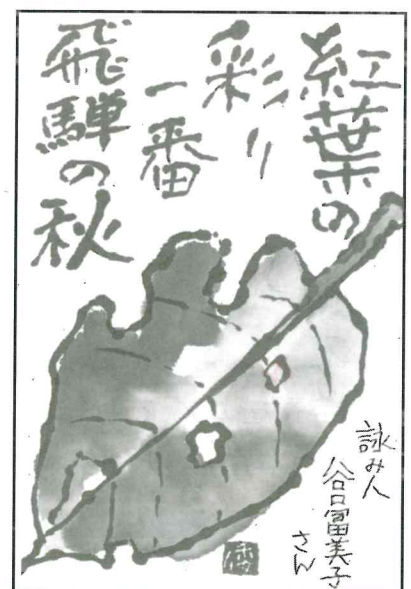 紅葉の
彩り
一番
飛騨の秋
詠み人
谷口冨美子
さん